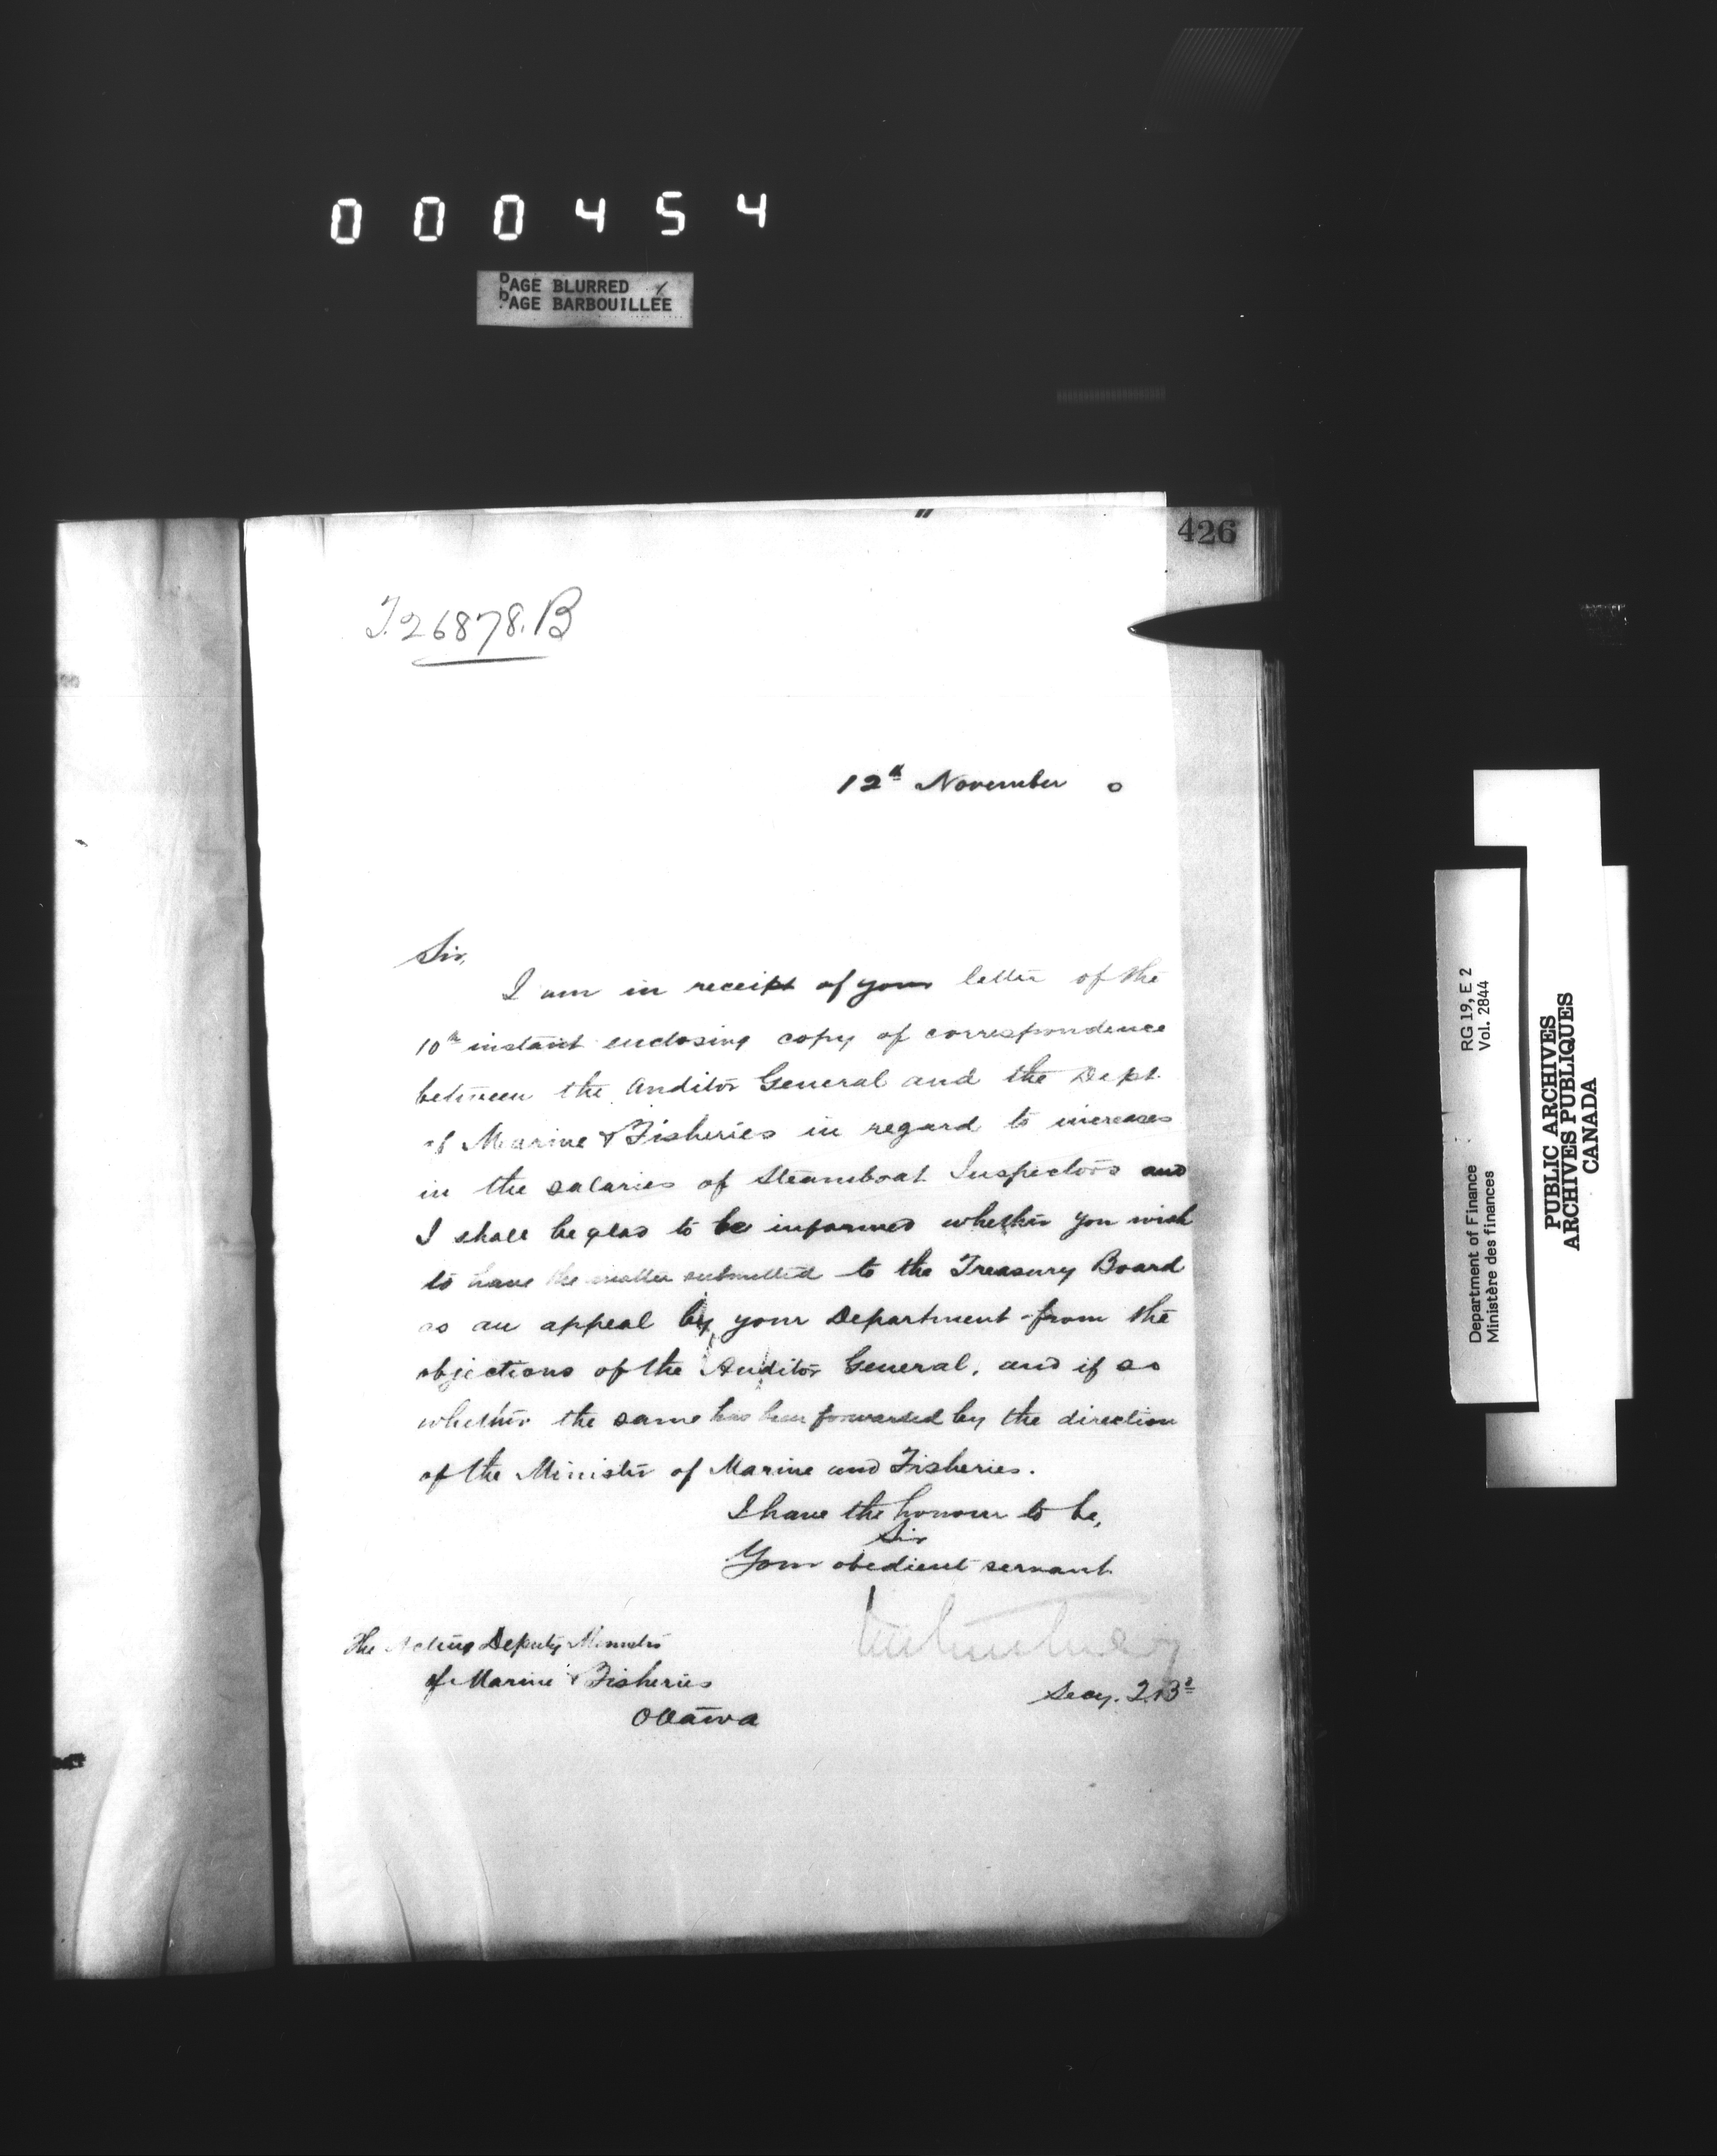 000454
PAGE BLURRED
PAGE BARBOUILLEE
426
J.26878.B
12th November 0
Sir,
I am in receipt of your letter of the
10th instant enclosing copy of correspondence
between the Auditor General and the Dept.
of Marine & Fisheries in regard to increases
in the salaries of Steamboat Inspectors and
I shall be glad to be informed whether you wish
to have the matter submitted to the Treasury Board
as an appeal by your Department from the
objections of the Auditor General, and if so
whether the same has been forwarded by the direction
of the Minister of Marine and Fisheries.
I have the honour to be,
Sir
Your obedient servant
The Acting Deputy Minister
of Marine & Fisheries
Ottawa
Secy.
Department of Finance RG 19, E 2
Ministère des finances Vol. 2844
PUBLIC ARCHIVES
ARCHIVES PUBLIQUES
CANADA